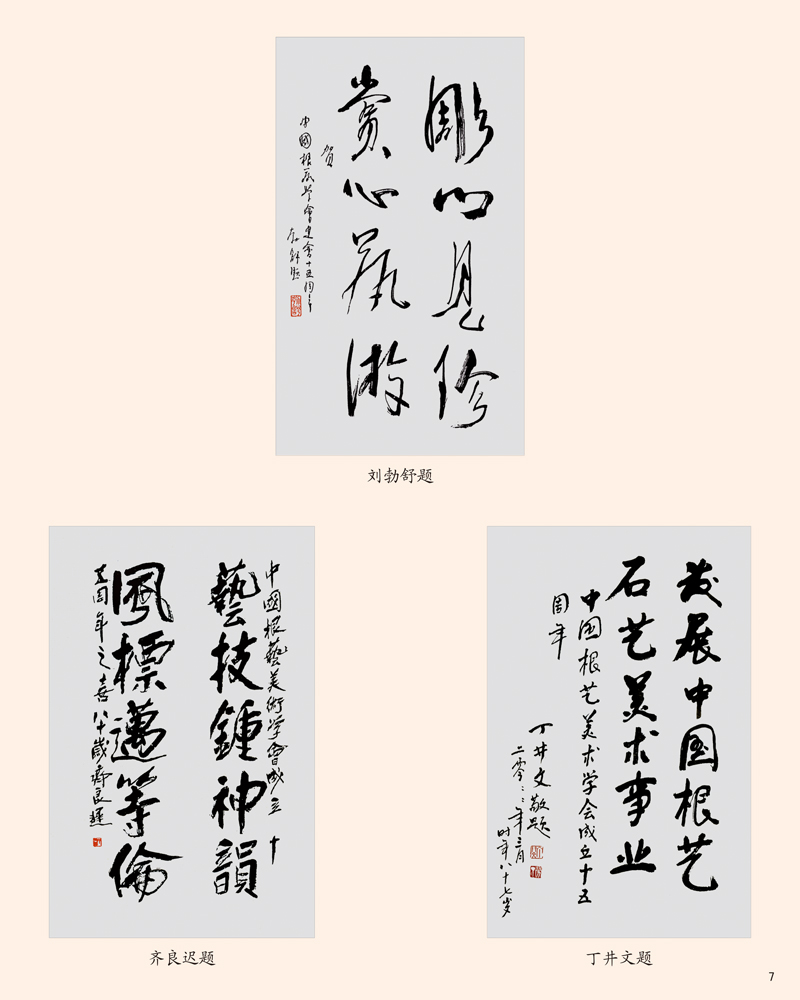 雕心见珍
赏心藝游
贺
中國根藝学會建會十五周年
勃舒题
刘勃舒题
中國根藝美術学會成立十
藝技鍾神韻
風標邁等倫
五周年之喜八十歲齊良遲
齐良迟题
发展中国根艺
石艺美术事业
中国根艺美术学会成立十五
周年
丁井文敬题
二零〇二年三月
时年八十七岁
丁井文题
7